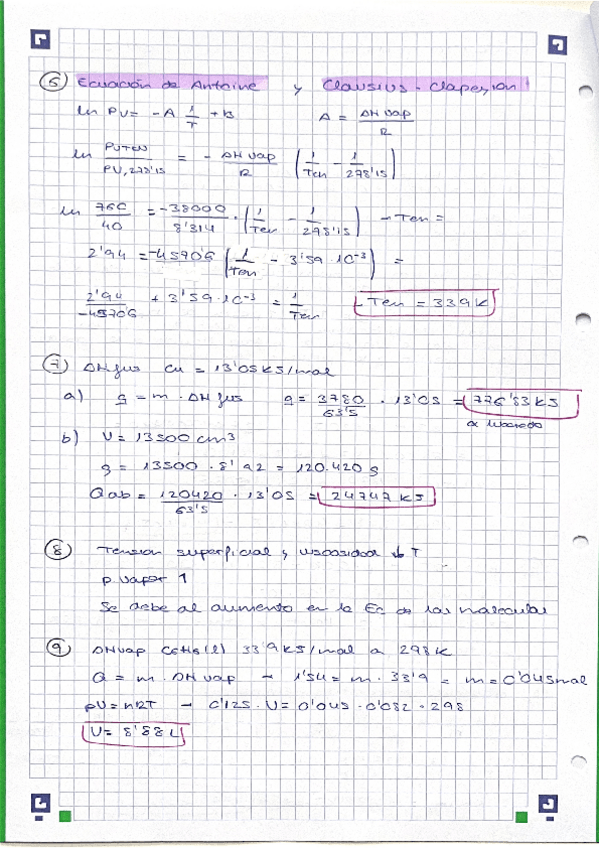 6 Ecuación de Antoine y Clausius-Clapeyron
ln PV = -A 1/T + B A = ΔHvap/R
ln PVTEN/PV,278'15 = - ΔHvap/R (1/Ten - 1/278'15)
ln 760/40 = -38000/8'314 · (1/Ten - 1/298'15) - Ten =
2'94 = -4570'6 (1/Ten - 3'59 · 10-3) =
2'94/-4570'6 + 3'59 · 10-3 = 1/Ten - Ten = 339 K
7 ΔHfus Cu = 13'05 KJ/mol
a) q = m · ΔHfus q = 3780/63'5 · 13'05 = 776'83 KJ
b) V = 13500 cm3
g = 13500 · 8'92 = 120.420 g
Qab = 120420/63'5 · 13'05 = 24747 KJ
8 Tension superficial y viscosidad ↓ T
p. vapor ↑
Se debe al aumento en la Ec de las moleculas
9 ΔHvap C6H6(l) 33'9 KJ/mol a 298 K
Q = m · ΔHvap - 1'54 = m · 33'9 = m = 0'045 mol
pV = nRT - 0'125 · V = 0'045 · 0'082 · 298
V = 8'88 L